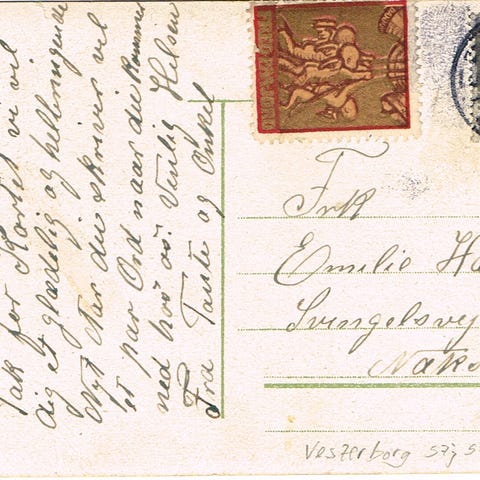 Tak for Kortet vi vil
dig et glædelig og helbringende
Nyt Aar du skriver vel
et par Ord naar du kommer
ned hos os. Venlig Hilsen
Fra Tante og Onkel
Frk
Emilie Ha
Svingelsvej
Naks
Vesterborg